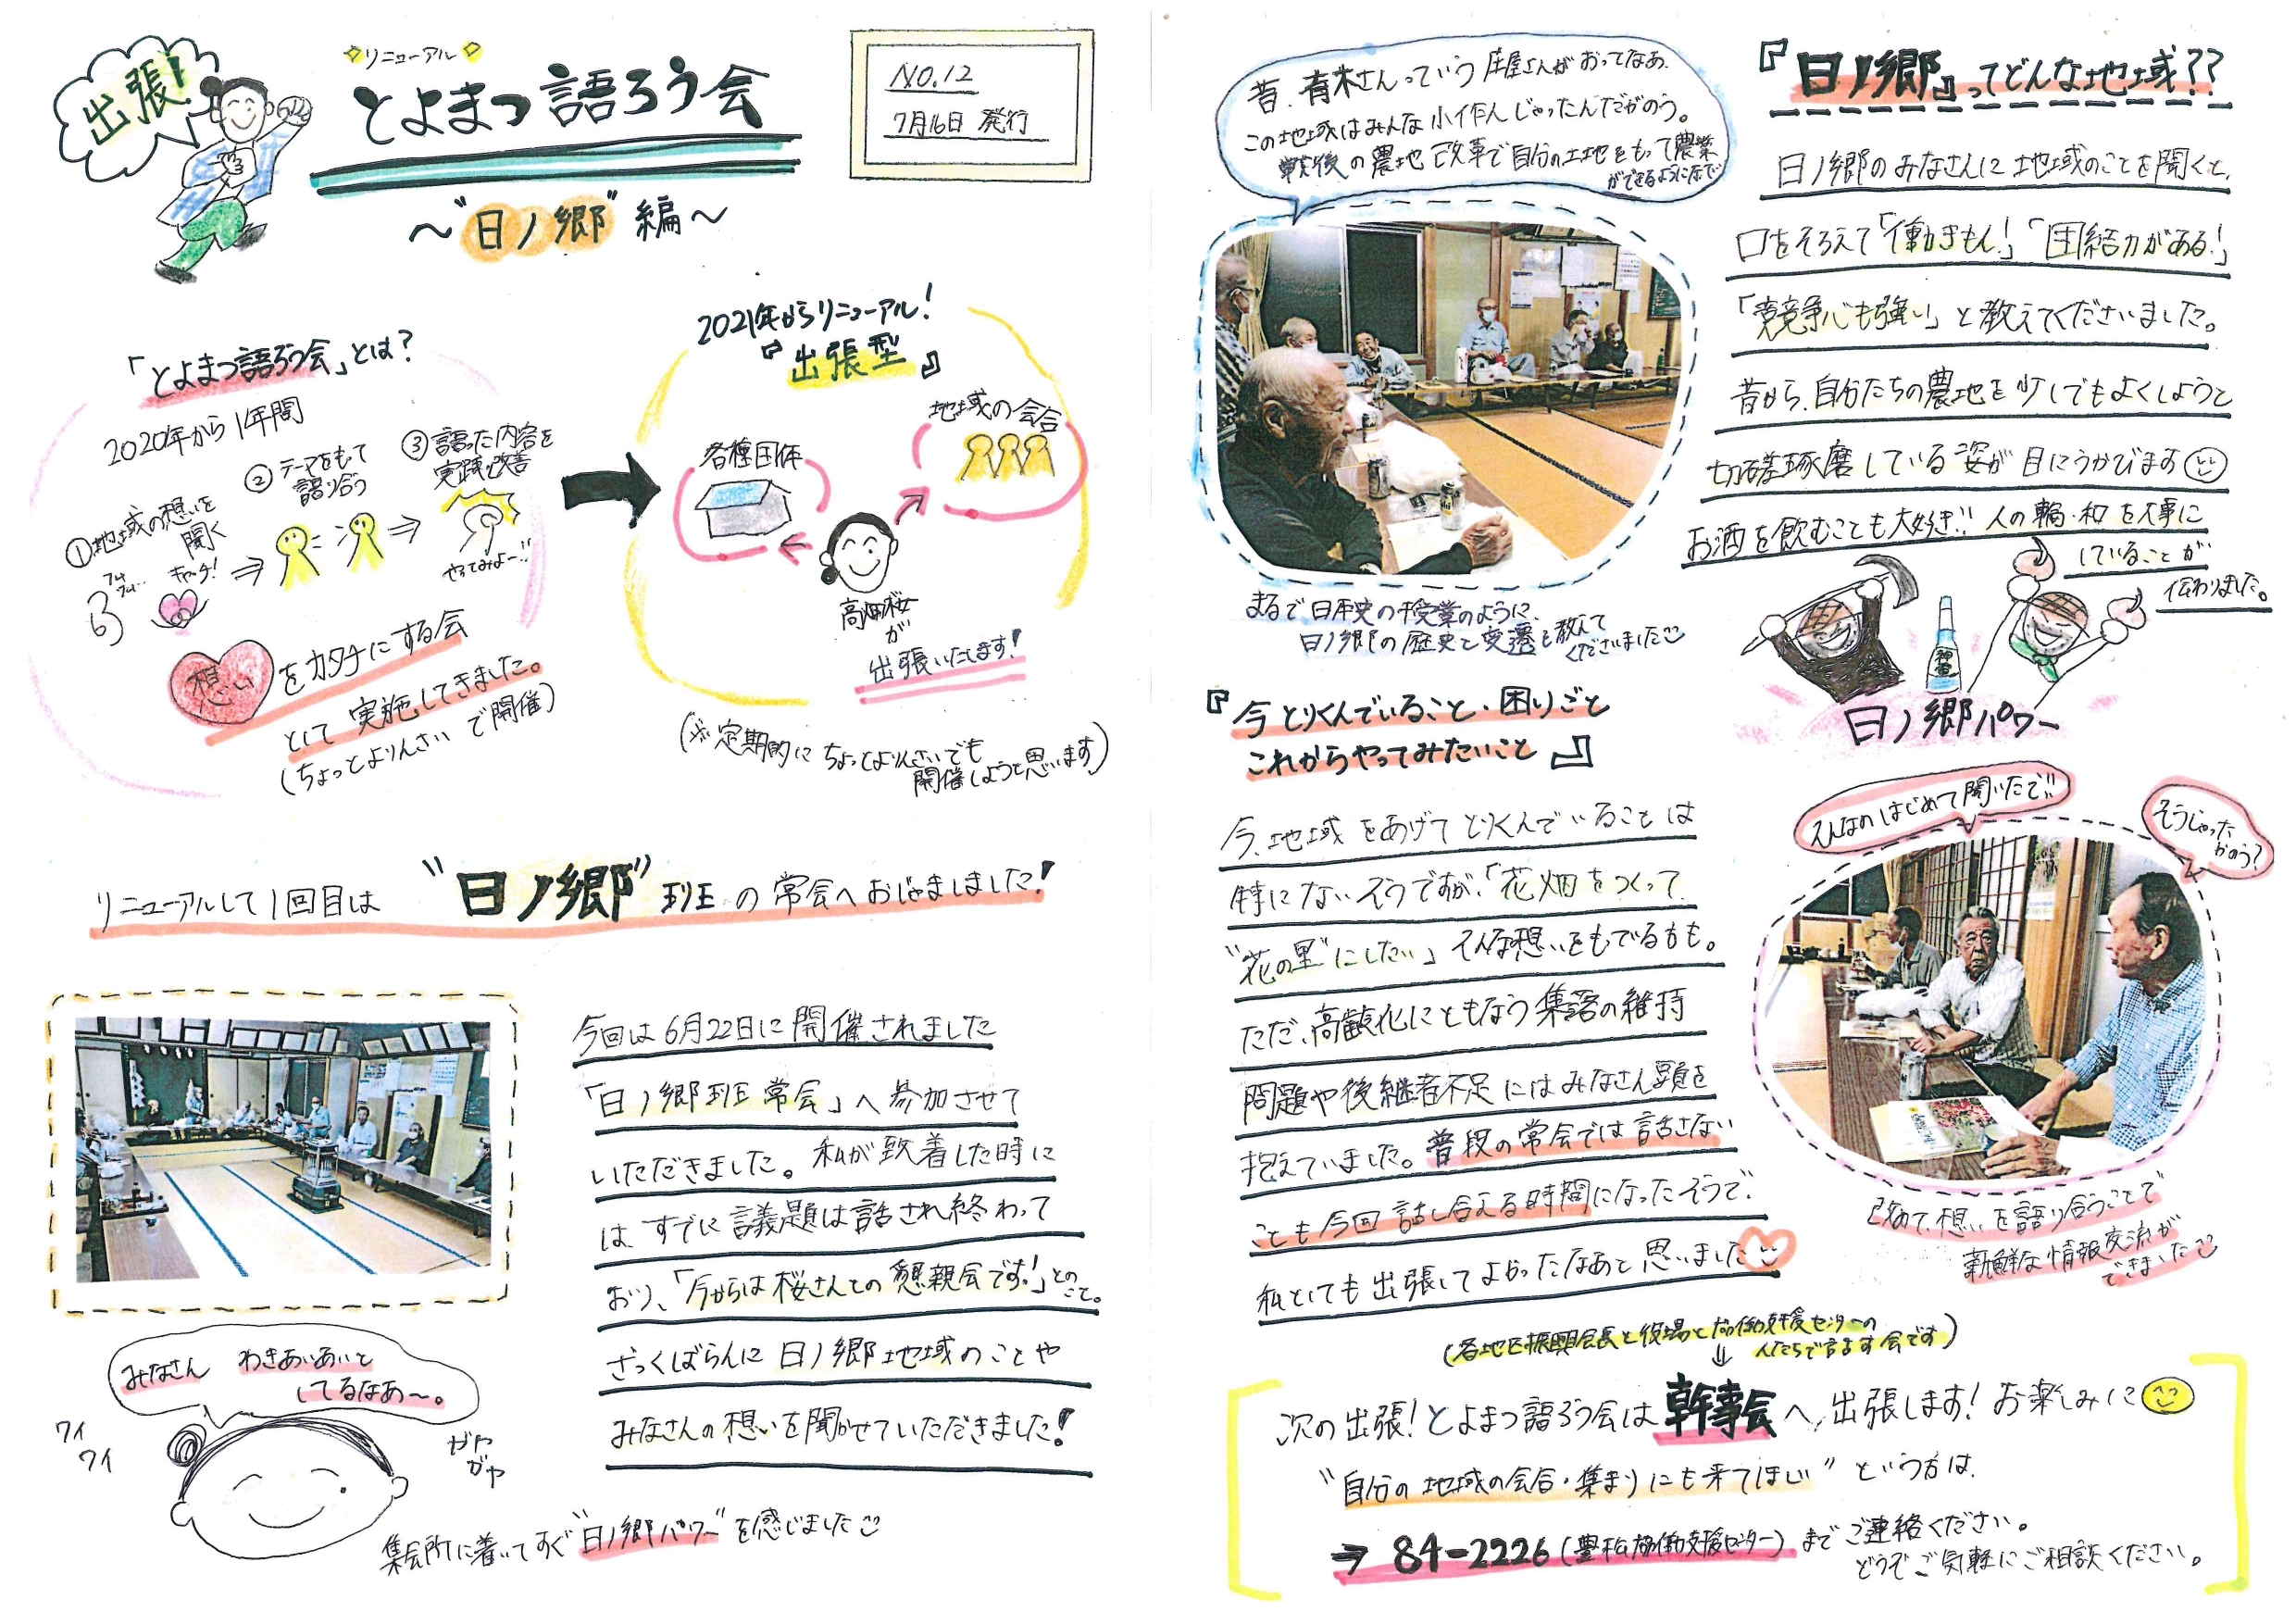 出張!
リニューアル
とよまつ語ろう会
～"日ノ郷"編～
NO.12
7月16日 発行
「とよまつ語ろう会」とは?
2020年から1年間
①地域の想いを
聞く
キャッチ!
②テーマをもって
語り合う
③語った内容を
実践・改善
やってみよー!!
想い
をカタチにする会
として実施してきました。
(ちょっとよりんさい で開催)
2021年からリニューアル!
『出張型』
各種団体
地域の会合
高畑桜
が
出張いたします!
(※定期的にちょっとよりんさいでも
開催しようと思います)
リニューアルして1回目は "日ノ郷"班の常会へおじゃましました!
今回は6月22日に開催されました
「日ノ郷班常会」へ参加させて
いただきました。私が致着した時に
は、すでに議題は話され終わって
おり、「今からは桜さんとの懇親会です!」とのこと。
ざっくばらんに日ノ郷地域のことや
みなさんの想いを聞かせていただきました!
みなさん わきあいあいと
してるなあ～。
ワイ
ワイ
ガヤ
ガヤ
集会所に着いてすぐ"日ノ郷パワー"を感じました
昔、青木さんっていう庄屋さんがおってなあ、
この地域はみんな小作人じゃったんだがのう。
戦後の農地改革で自分の土地をもって農業
ができるようになって
まるで日本史の授業のように、
日ノ郷の歴史と変遷を教えて
くださいました
『日ノ郷』ってどんな地域??
日ノ郷のみなさんに地域のことを聞くと、
口をそろえて「働きもん!」「団結力がある!」
「競争心も強い」と教えてくださいました。
昔から、自分たちの農地を少しでもよくしようと
切磋琢磨している姿が目にうかびます
お酒を飲むことも大好き!! 人の輪・和を大事に
していることが
伝わりました。
神雷
日ノ郷パワー
『今とりくんでいること・困りごと
これからやってみたいこと』
今、地域をあげてとりくんでいることは
特にないそうですが、「花畑をつくって
"花の里"にしたい」そんな想いをもってる方も。
ただ、高齢化にともなう集落の維持
問題や後継者不足にはみなさん頭を
抱えていました。普段の常会では話さない
ことも今回話し合える時間になったそうで、
私としても出張してよかったなあと思いました
そんなのはじめて聞いたで!!
そうじゃった
かのう?
改めて、想いを語り合うことで
新鮮な情報交流が
できました
(各地区振興会長と役場と協働支援センターの
人たちで話す会です)
次の出張!とよまつ語ろう会は幹事会へ出張します!お楽しみに
"自分の地域の会合・集まりにも来てほしい"という方は、
→ 84-2226(豊松協働支援センター)までご連絡ください。
どうぞご気軽にご相談ください。